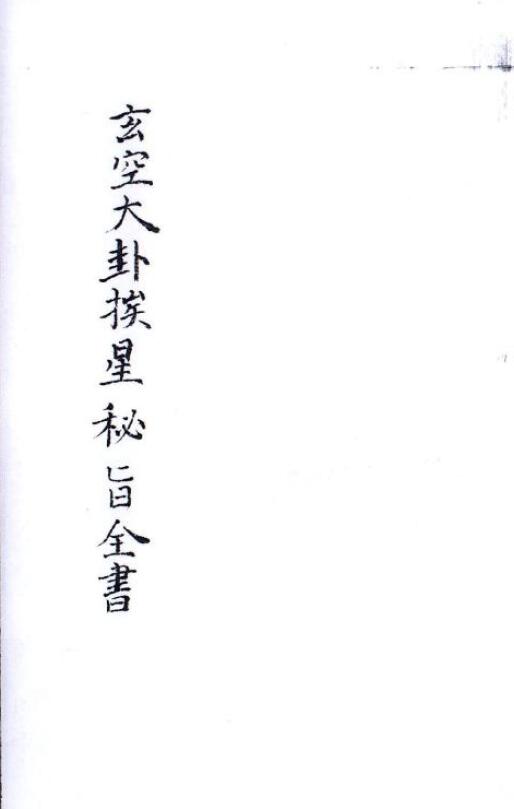 玄空大卦挨星秘旨全書